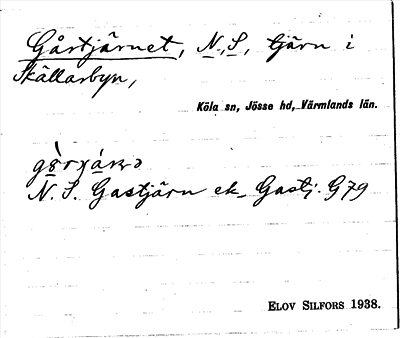 Gårtjärnet, N., S., tjärn i
Skällarbyn,
Köla sn, Jösse hd, Värmlands län.
N. S. Gastjärn ek. Gastj. G79
ELOV SILFORS 1938.